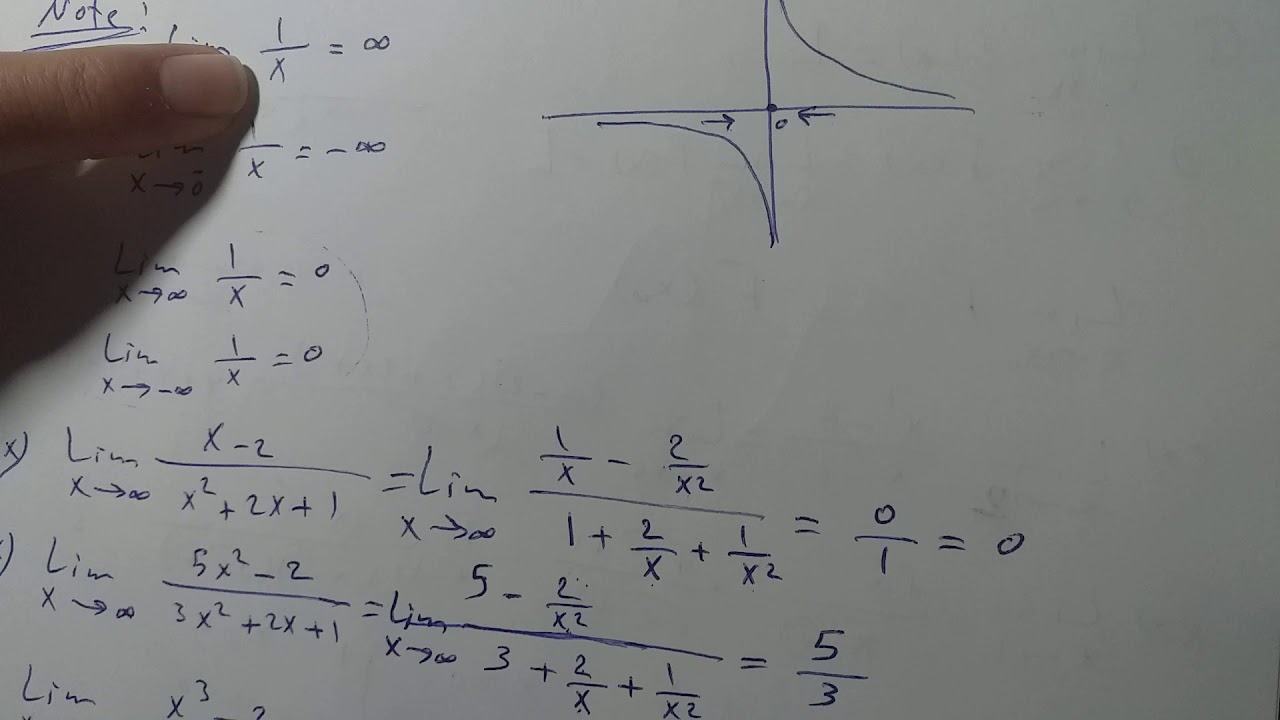 Note!
Lim 1/x = ∞
Lim x→0⁻ 1/x = -∞
0
Lim x→∞ 1/x = 0
Lim x→-∞ 1/x = 0
x) Lim x→∞ (x-2)/(x²+2x+1) = Lim x→∞ (1/x - 2/x²)/(1 + 2/x + 1/x²) = 0/1 = 0
Lim x→∞ (5x²-2)/(3x²+2x+1) = Lim x→∞ (5 - 2/x²)/(3 + 2/x + 1/x²) = 5/3
Lim x³-2